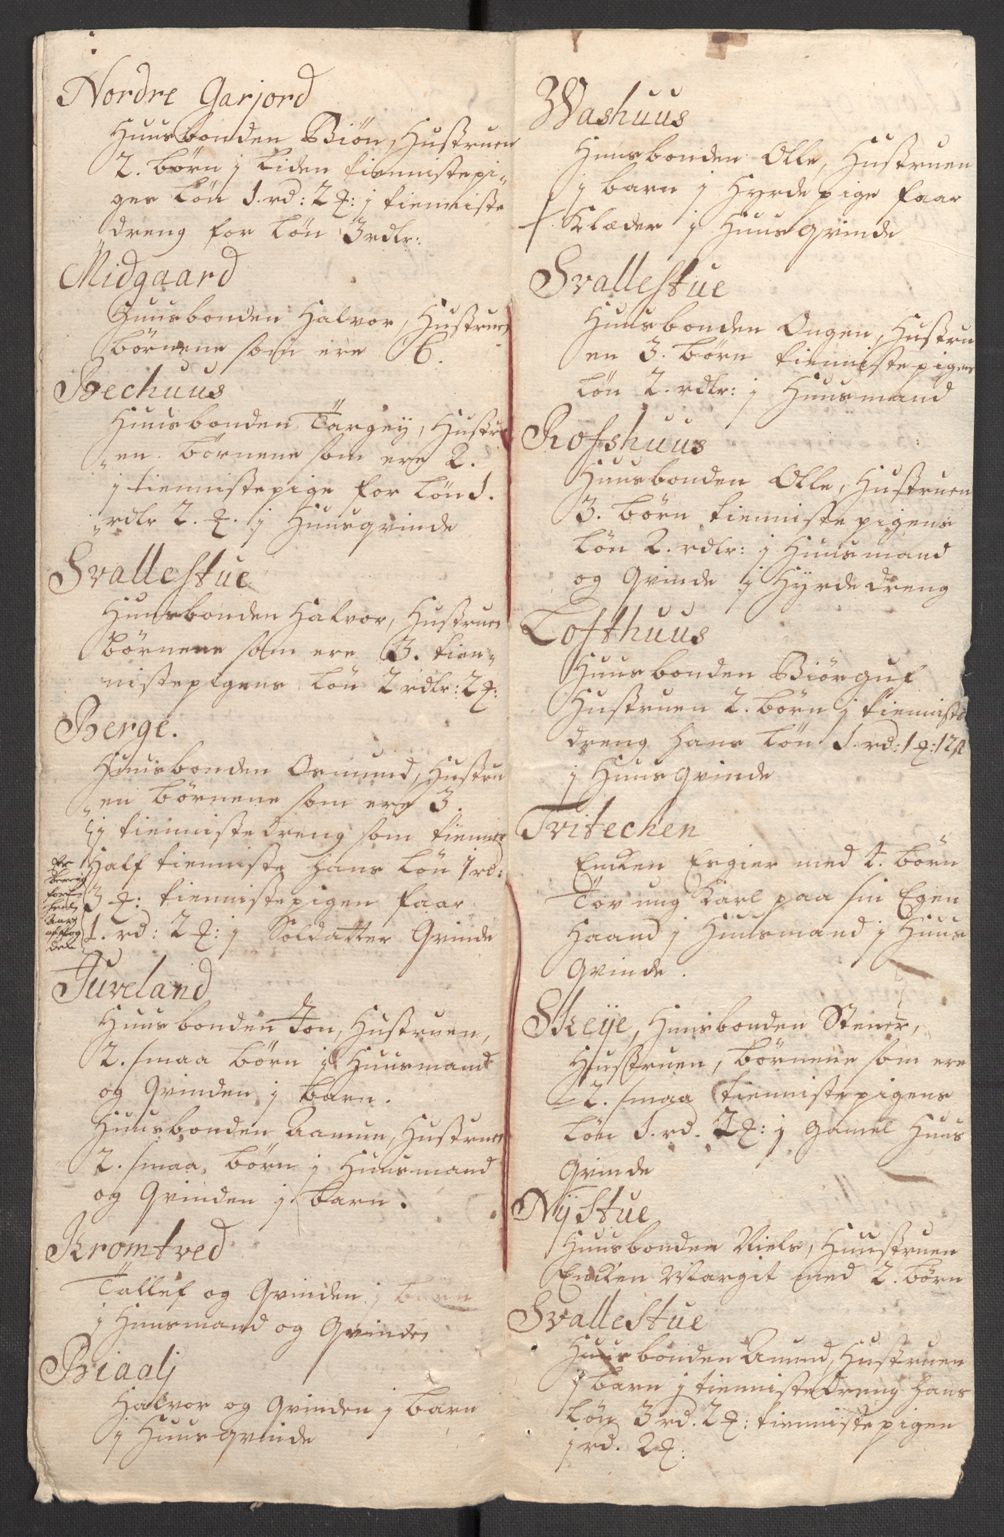 Nordre Garjord
Huusbonden Biön, Hustruen
2. börn j liden tiennistepi-
ges Lön 1. rd: 2 ℥: j tienniste
dreng for Lön 3 rdlr:
Midgaard
Huusbonden Halvor, Hustruen
börnene som ere 6.
Bechuus
Huusbonden Targey, Hustru
en. börnene som ere 2.
j tiennistepige for Lön 1.
rdlr 2. ℥. j Huusqvinde
Svallestue
Huusbonden Halvor, Hustruen
börnene som ere 3. tien-
nistepigens Lön 2 rdlr: 2 ℥:
Berge.
Huusbonden Osmund, Hustru
en börnene som ere 3.
j tiennistedreng som tienner
Half tienniste hans Lön 1 rd:
3 ℥: tiennistepigen faar
1. rd: 2 ℥: j Soldatter Qvinde
Juveland
Huusbonden Jon, Hustruen,
2. smaa börn j Huusmand
og Qvinden j barn.
Huusbonden Aamun, Hustruen
2. smaa börn j Huusmand
og Qvinden j barn.
Kromtved
Tallef og Qvinden j barn
j Huusmand og Qvinde
Biaalj
Halvor og Qvinden j barn
j Huusqvinde
Washuus
Huusbonden Olle, Hustruen
j barn j Hyrde pige faar
Klæder j Huusqvinde
Svallestue
Huusbonden Ougen, Hustru
en 3. börn tiennistepigens
Lön 2. rdlr: j Huusmand
Rofshuus
Huusbonden Olle, Hustruen
3. börn tienniste pigens
Lön 2. rdlr: j Huusmand
og Qvinde j Hyrde dreng
Lofthuus
Huusbonden Biörguf
Hustruen 2. börn j tienniste
dreng hans Lön 1. rd: 1 ℥: 12 β
j Huusqvinde
Tvitechen
Enken Esgier med 1. börn
Tov ung Karl paa sin Egen
Haand j Huusmand j Huus
Qvinde.
Skeije, Huusbonden Stener,
Hustruen, börnene som ere
2. smaa tiennistepigens
Lön 1. rd. 2 ℥: j Gamel Huus
Qvinde
Nÿstue
Huusbonden Niels, Huustruen
Enken Margit med 2. börn
Svallestue
Huusbonden Amund, Hustruen
j barn j tiennistedreng hans
Lön 3 rd. 2 ℥: tiennistepigen
j rd. 2 ℥: